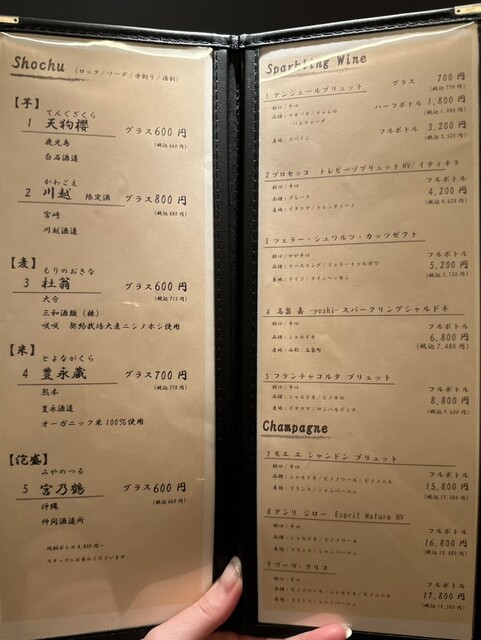 Shochu (ロック/ソーダ/水割り/湯割)
【芋】
てんぐざくら
1 天狗櫻 グラス600円
(税込660円)
鹿児島
白石酒造
かわごえ
2 川越 限定酒 グラス800円
(税込880円)
宮崎
川越酒造
【麦】
もりのおきな
3 杜翁 グラス600円
(税込715円)
大分
三和酒類(株)
咲咲 契約栽培大麦ニシノホシ使用
【米】
とよながくら
4 豊永蔵 グラス700円
(税込770円)
熊本
豊永酒造
オーガニック米100%使用
【泡盛】
みやのつる
5 宮乃鶴 グラス600円
(税込660円)
沖縄
仲間酒造所
焼酎ボトル4,800円~
スタッフにお尋ねくださいませ
Sparkling Wine
1 アンジェールブリュット グラス 700円
(税込770円)
味わい:辛口 ハーフボトル 1,800円
(税込1,980円)
フルボトル 3,200円
(税込3,520円)
産地:スペイン
2 プロセッコ トレビーゾブリュットNV/イティネラ
味わい:辛口 フルボトル
品種:グレーラ 4,200円
産地:イタリア/トレンティーノ (税込4,620円)
3 ツェラー・シュワルツ・カッツゼクト
味わい:やや辛口 フルボトル
品種:リースリング/ミュラートゥルガウ 5,200円
産地:ドイツ/ラインヘッセン (税込5,720円)
4 高畠 嘉 -yoshi- スパークリングシャルドネ
味わい:辛口 フルボトル
品種:シャルドネ 6,800円
産地:山形/高畠町 (税込7,480円)
5 フランチャコルタ ブリュット
味わい:辛口 フルボトル
品種:シャルドネ/ピノネロ 8,800円
産地:イタリア/ロンバルディア (税込9,680円)
Champagne
7 モエ エ シャンドン ブリュット
味わい:辛口 フルボトル
品種:シャルドネ/ピノノワール/ピノムニエ 15,800円
産地:フランス/シャンパーニュ (税込17,380円)
8 アンリ ジロー Esprit Nature NV
味わい:辛口 フルボトル
品種:シャルドネ/ピノノワール 16,800円
産地:フランス/シャンパーニュ (税込18,480円)
9 ヴーヴ・クリコ
味わい:辛口 フルボトル
品種:ピノノワール/シャルドネ/ピノムニエ 17,800円
産地:フランス/シャンパーニュ (税込19,580円)